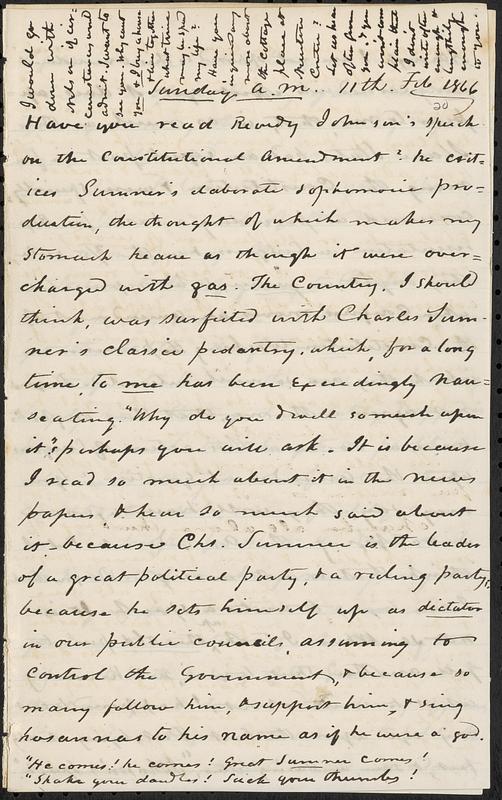 Sunday a.m. 11th. Feb 1866
20
Have you read Reverdy Johnson's speech
on the Constitutional Amendment? he crit=
ices Sumner's elaborate sophomoric pro=
duction, the thought of which makes my
stomach heave as though it were over=
charged with gas. The Country, I should
think, was surfeited with Charles Sum=
ner's classic pedantry, which, for a long
time, to me has been exceedingly nau=
seating. "Why do you dwell so much upon
it"? perhaps you will ask. It is because
I read so much about it in the news
papers, & hear so much said about
it - because Chs. Sumner is the leader
of a great political party, & a ruling party,
because he sets himself up as dictator
in our public councils, assuming to
control the Government, & because so
many follow him, & support him, & sing
hosannas to his name as if he were a god.
"He comes! he comes! Great Sumner comes!
"Shake your daddles! Suck your thumbs!
I would go
down with
Nelson if cir=
cumstances would
admit. I want to
see you. Why cant
you & I buy a house
there try the
what time
may be spared
my life?
Have you
inquired any
more about
the cottage
place at
Newton
Centre?
Let us hear
often from
you & you
must com
plain that
I dont
write often
enough &
anything
enough
to you.